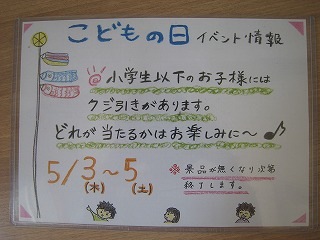 こどもの日 イベント情報
小学生以下のお子様には
クジ引きがあります。
どれが当たるかはお楽しみに〜♪
5/3〜5
(木) (土)
※景品が無くなり次第
終了します。